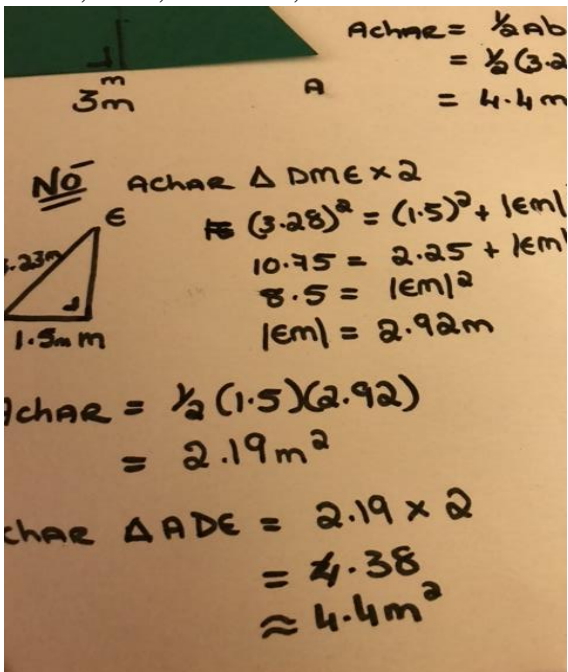 Achar = ½Ab
= ½(3.2
= 4.4m
m
3m
A
NÓ Achar Δ DME x 2
(3.28)² = (1.5)² + |EM|
10.75 = 2.25 + |EM|
8.5 = |EM|²
|EM| = 2.92m
E
.23m
1.5m m
Achar = ½(1.5)(2.92)
= 2.19m²
char Δ ADE = 2.19 x 2
= 4.38
≈ 4.4m²